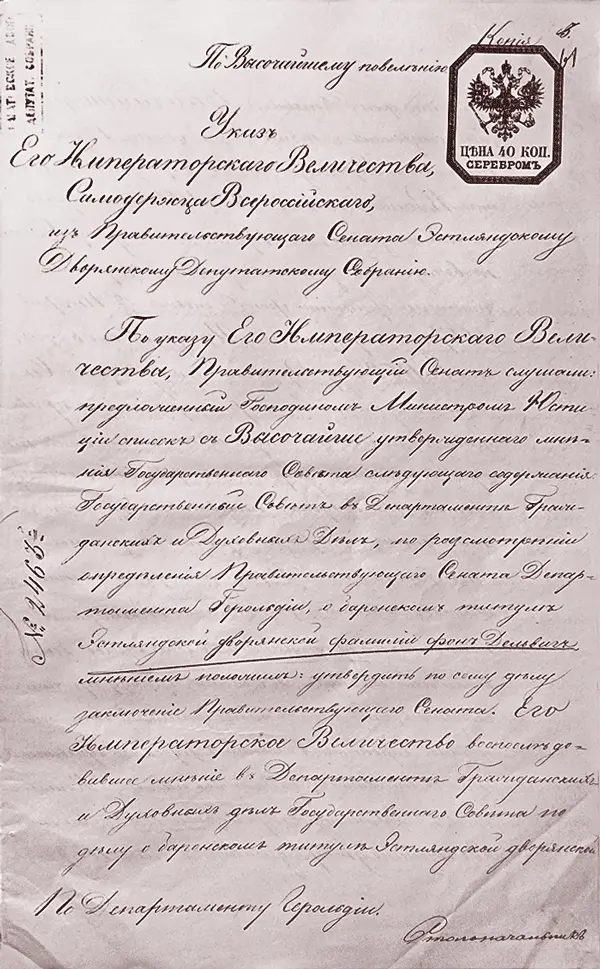 Копія
По Высочайшему повелѣнію
ЦѢНА 40 КОП.
СЕРЕБРОМЪ
Указъ
Его Императорскаго Величества,
Самодержца Всероссійскаго,
изъ Правительствующаго Сената Эстляндскому
Дворянскому Депутатскому Собранію.
По указу Его Императорскаго Вели-
чества, Правительствующій Сенатъ слушали:
предложенный Господиномъ Министромъ Юсти-
ціи списокъ съ Высочайше утвержденнаго мнѣ-
нія Государственнаго Совѣта слѣдующаго содержанія:
Государственный Совѣтъ въ Департаментѣ Граж-
данскихъ и Духовныхъ Дѣлъ, по разсмотрѣніи
опредѣленія Правительствующаго Сената Депар-
тамента Герольдіи, о баронскомъ титулѣ
Эстляндской дворянской фамиліи фонъ Дельвигъ,
мнѣніемъ положилъ: утвердить по сему дѣлу
заключеніе Правительствующаго Сената. Его
Императорское Величество воспослѣдо-
вавшее мнѣніе въ Департаментѣ Гражданскихъ
и Духовныхъ дѣлъ Государственнаго Совѣта по
дѣлу о баронскомъ титулѣ Эстляндской дворянской
№ 2465
По Департаменту Герольдіи.
Столоначальникъ